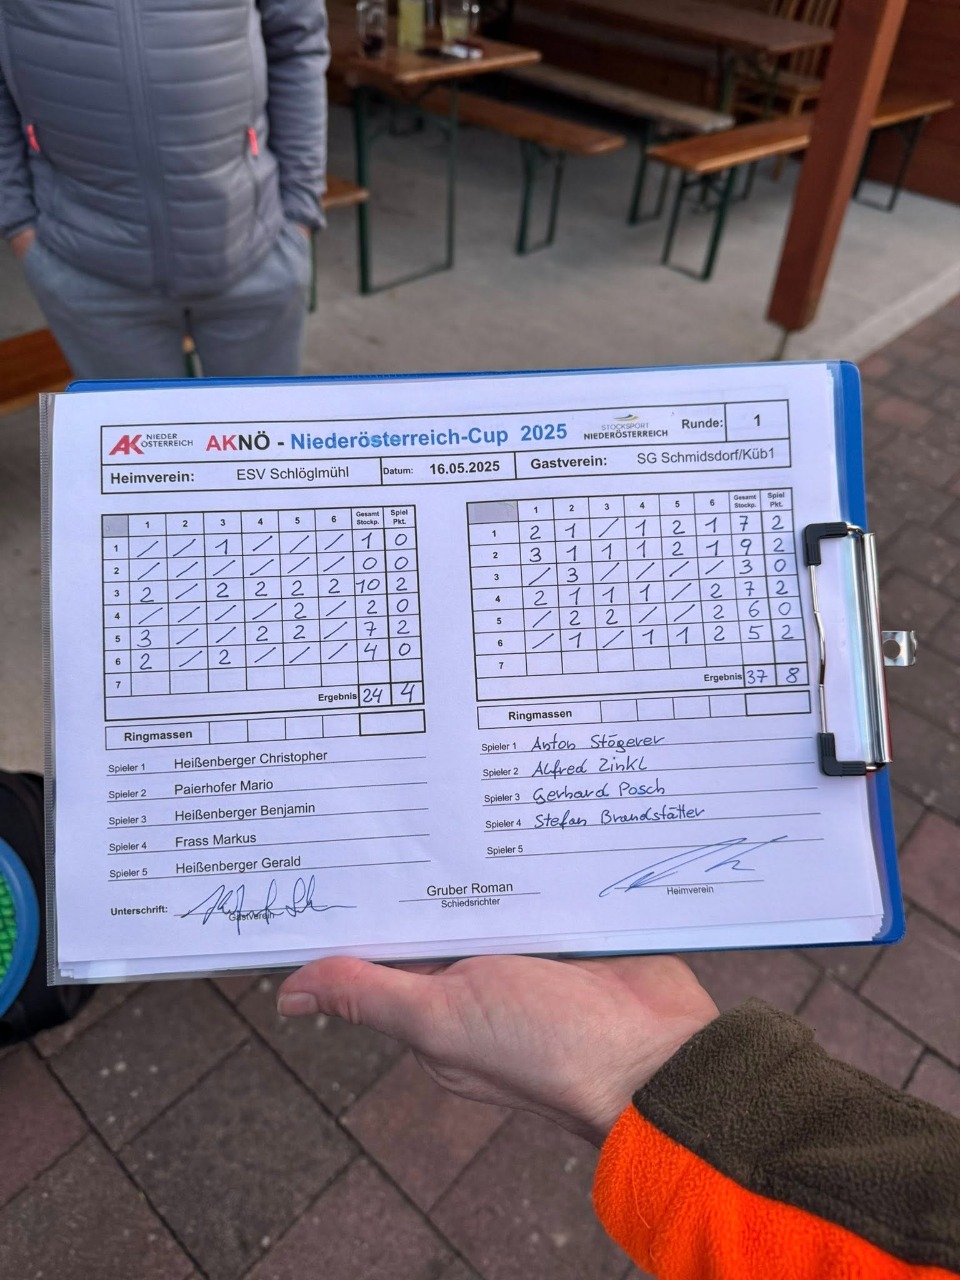 AK NIEDER ÖSTERREICH AKNÖ - Niederösterreich-Cup 2025 STOCKSPORT NIEDERÖSTERREICH Runde: 1
Heimverein: ESV Schlöglmühl Datum: 16.05.2025 Gastverein: SG Schmidsdorf/Küb1
1 2 3 4 5 6 Gesamt Stockp. Spiel Pkt.
1 / / 1 / / / 1 0
2 / / / / / / 0 0
3 2 / 2 2 2 2 10 2
4 / / / / 2 / 2 0
5 3 / / 2 2 / 7 2
6 2 / 2 / / / 4 0
7
Ergebnis 24 4
Ringmassen
Spieler 1 Heißenberger Christopher
Spieler 2 Paierhofer Mario
Spieler 3 Heißenberger Benjamin
Spieler 4 Frass Markus
Spieler 5 Heißenberger Gerald
1 2 3 4 5 6 Gesamt Stockp. Spiel Pkt.
1 2 1 / 1 2 1 7 2
2 3 1 1 1 2 1 9 2
3 / 3 / / / / 3 0
4 2 1 1 1 / 2 7 2
5 / 2 2 / / 2 6 0
6 / 1 / 1 1 2 5 2
7
Ergebnis 37 8
Ringmassen
Spieler 1 Anton Stögerer
Spieler 2 Alfred Zinkl
Spieler 3 Gerhard Posch
Spieler 4 Stefan Brandstätter
Spieler 5
Unterschrift: Gastverein
Gruber Roman
Schiedsrichter
Heimverein